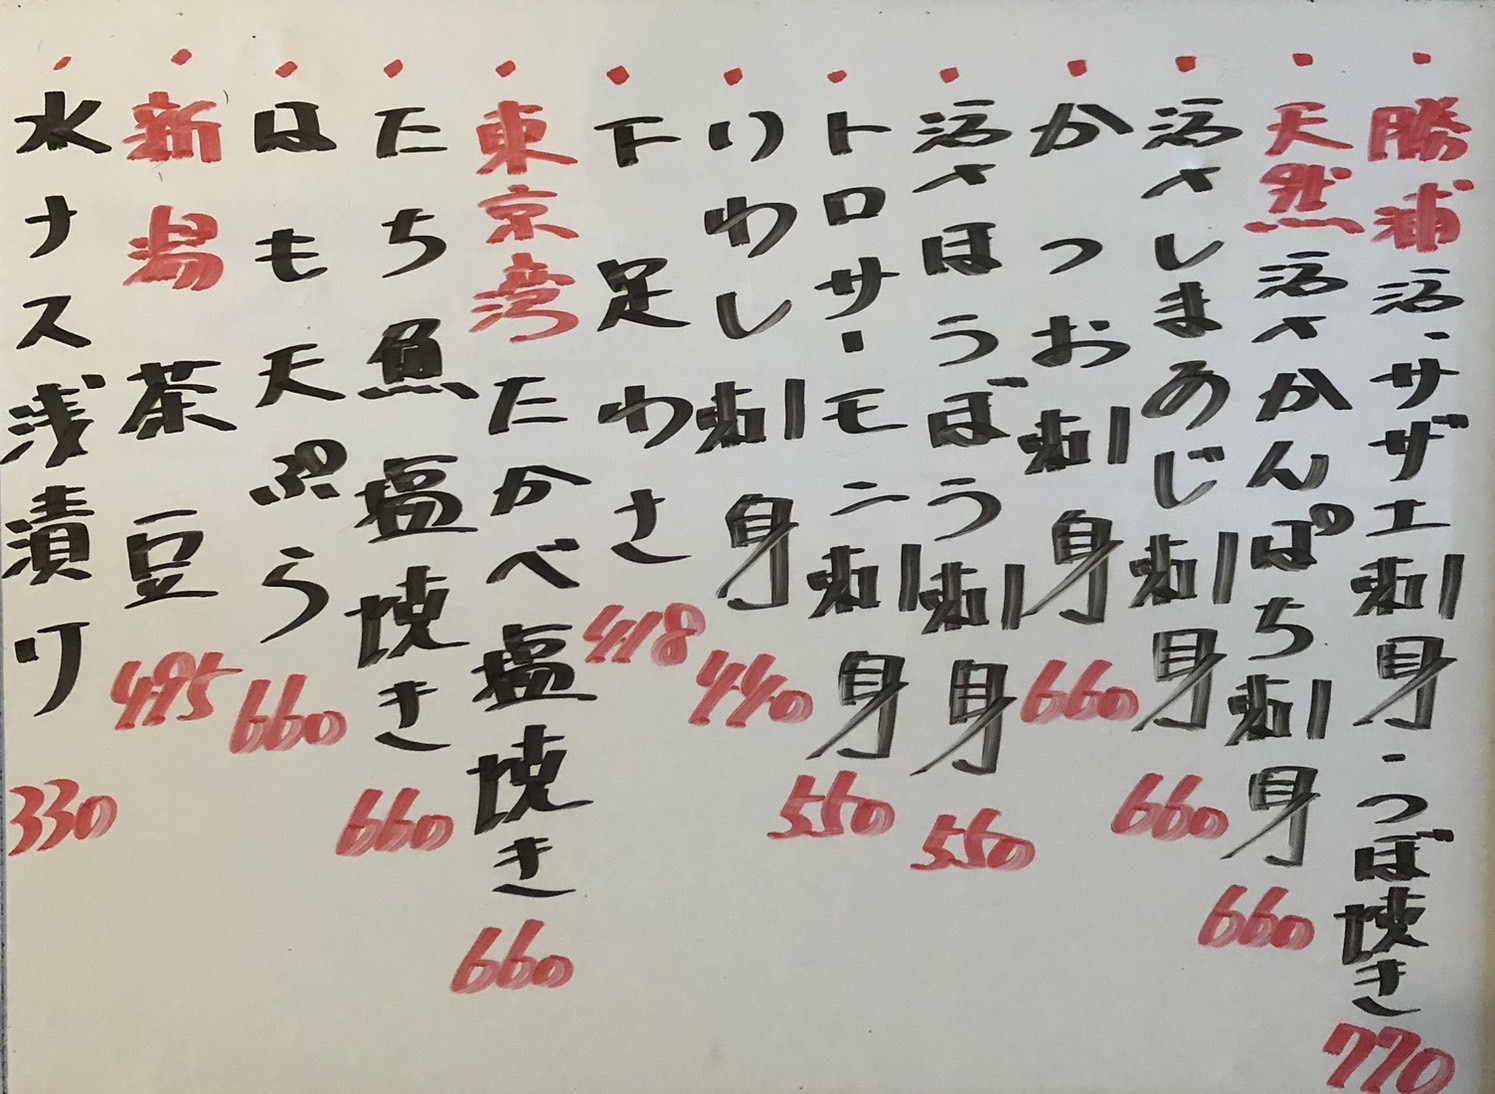 ・勝浦活〆サザエ刺身・つぼ焼き 770
・天然活〆かんぱち刺身 660
・活〆しまあじ刺身 660
・かつお刺身 660
・活〆ほうぼう刺身 550
・トロサーモン刺身 550
・いわし刺身 440
・下足わさ 418
・東京湾たかべ塩焼き 660
・たち魚塩焼き 660
・はも天ぷら 660
・新潟茶豆 495
・水ナス浅漬り 330